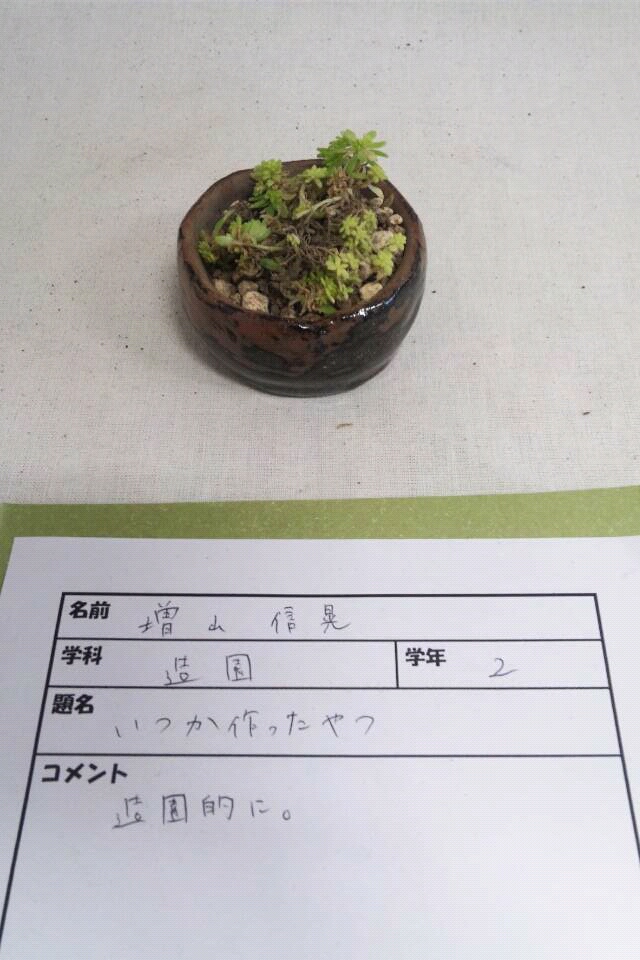 名前 増山 信晃
学科 造園 学年 2
題名 いつか作ったやつ
コメント
造園的に。